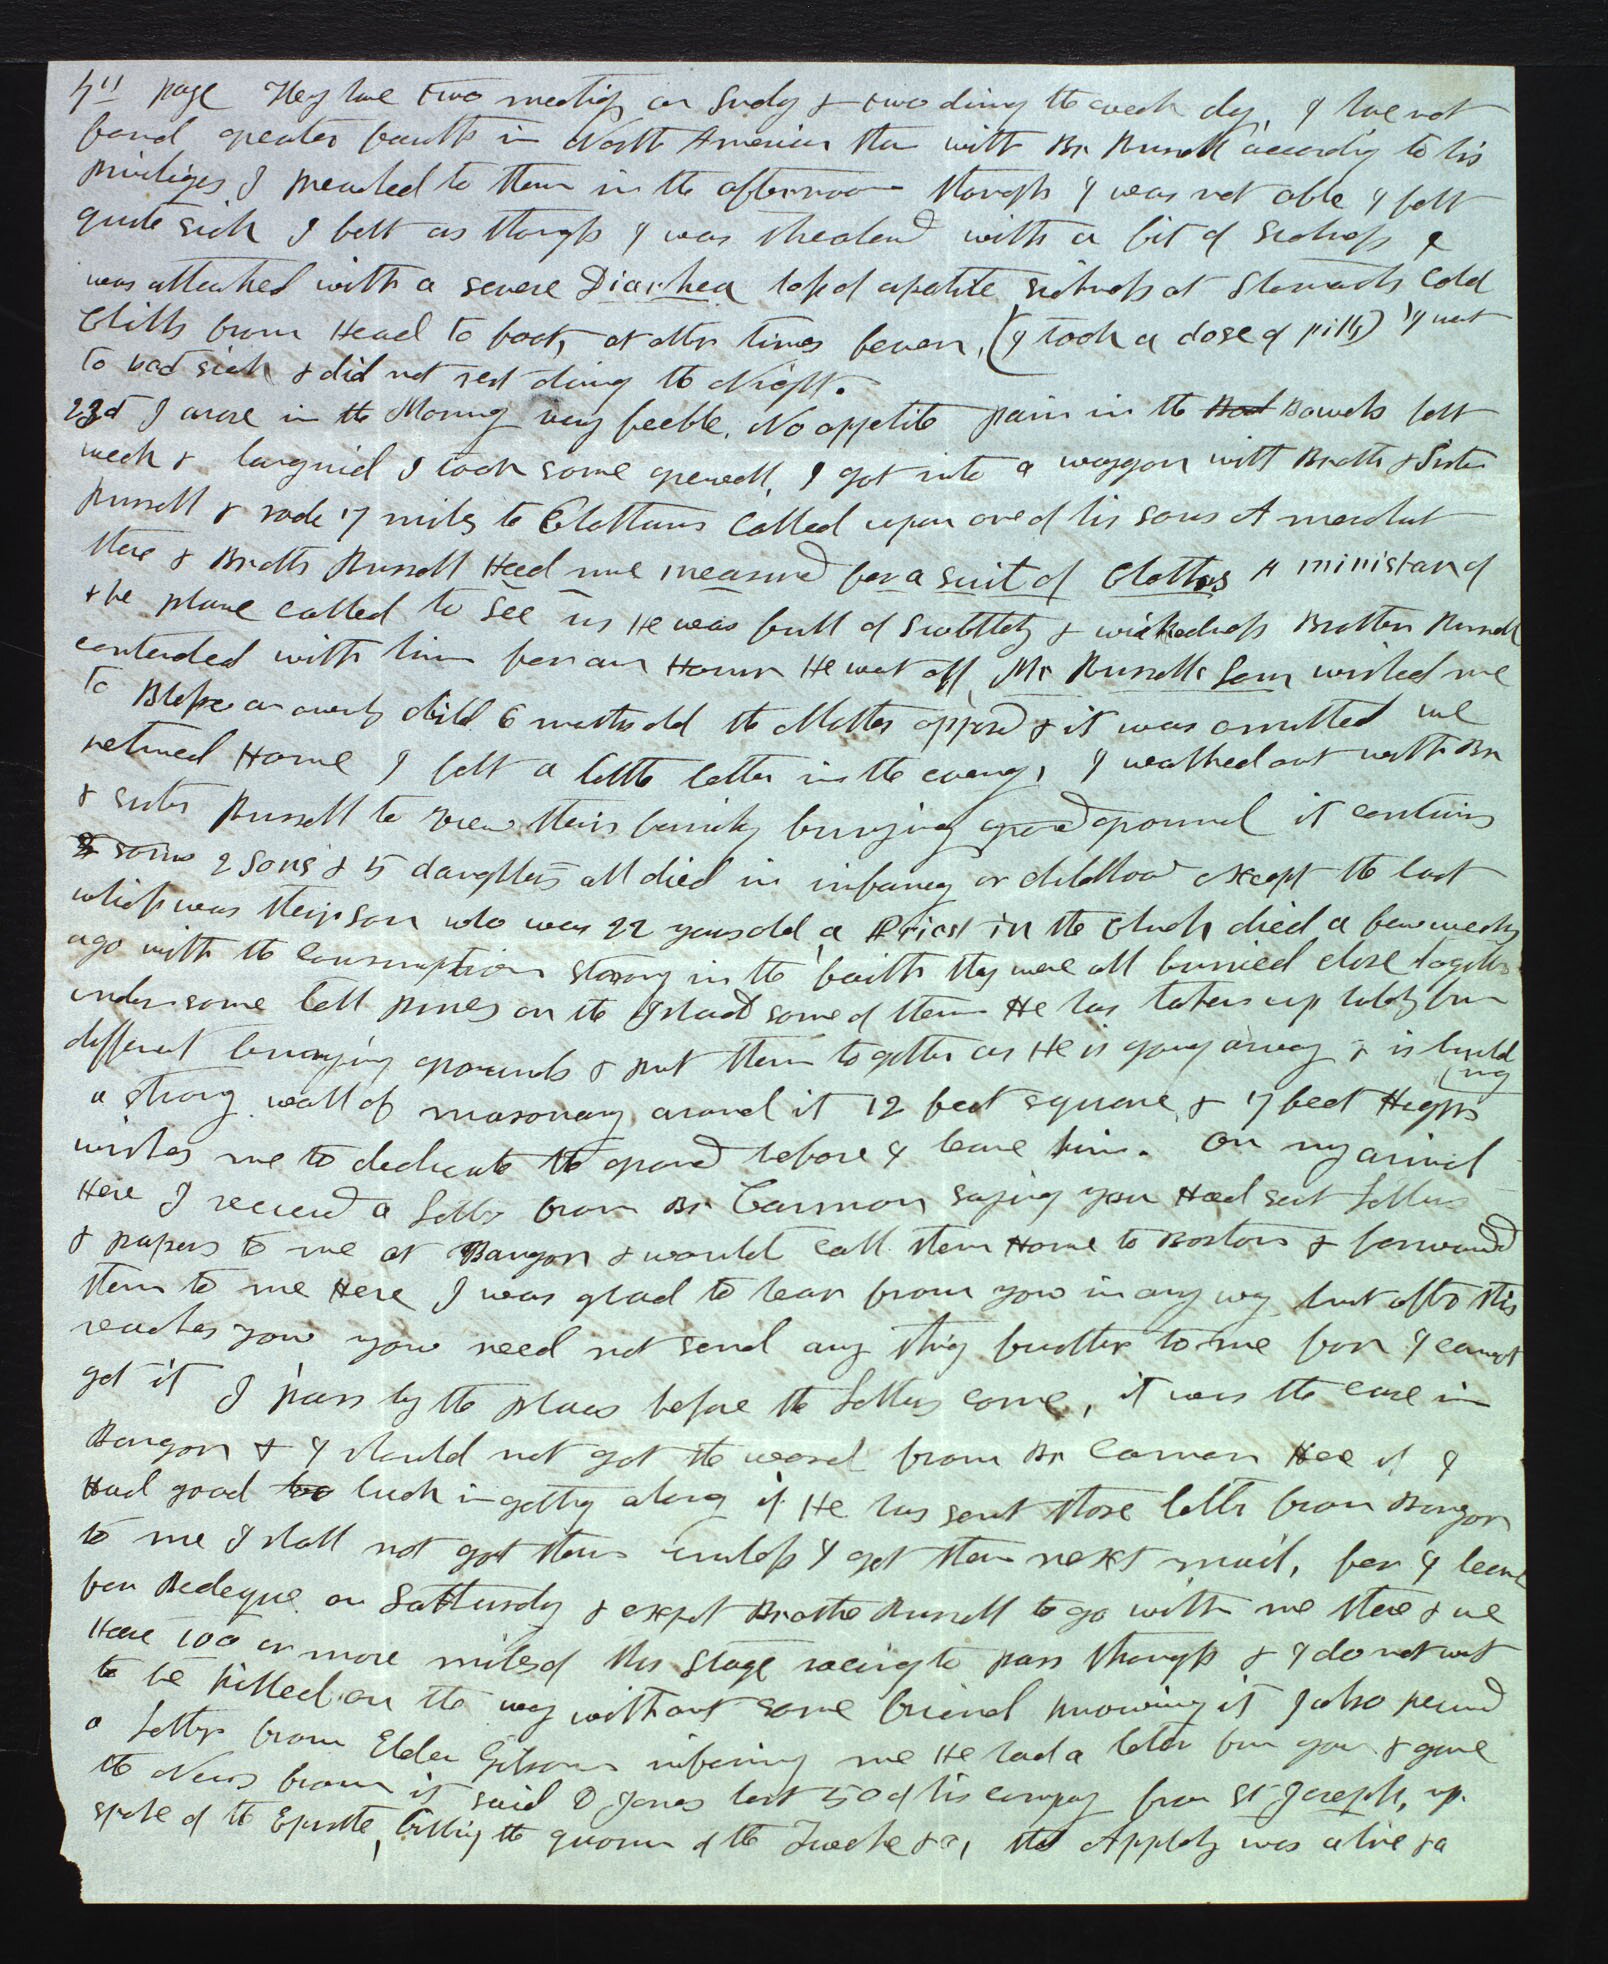 4th page They have two meetings on Sudy & two duing the week dy, I have not
found greater faith in North American than with Br Russell according to his
privliges I preached to them in the afternoon though I was not able I felt
quite sick I felt as though I was threatend with a fit of sickness I
was attacked with a severe Diarhea loss of apatite sickness at Stomach Cold
Chills from Head to foot, at other times fever, (I took a dose of pills) I went
to bed sick & did not rest duing the Night.
23d I arose in the Morning very feeble. No appetite pain in the Bow Bowels felt
weak & languid I took some gruell, I got into a waggon with Brother & Sister
Russell & rode 7 miles to Chattam Called upon one of his sons A merchant
there & Brother Russell Had me measured for a suit of Clothes A minister of
the place called to see us He was full of Subtlety & wickedness Brother Russell
contended with him for an Hour He went off, Mr Russells Son wished me
to Bless an only child 6 months old the Mother opposed & it was omitted we
returned Home I felt a little better in the evening, I walked out with Br
& sister Russell to view their family burying ground ground it contains
2 sons 2 sons & 5 daughters all died in infancy or childhood except the last
which was their son who was 22 years old, a Priest in the Church died a few weeks
ago with the Consumption strong in the faith they were all burried close together
under some tall pines on the Island some of them He has taken up lately from
different burrying grounds & put them together as He is going away & is build
(ing
a strong wall of masonary around it 12 feet square & 7 feet High
wishes me to dedicate the ground before I leave him. On my arival
Here I received a letter from Br Carmon saying you Had sent letters
& papers to me at Bangor & would call them Home to Boston & forward
them to me Here I was glad to hear from you in any way but after this
reaches you you need not send any thing further to me for I cannot
get it I pass by the places before the letters come, it was the case in
Bangor & I should not got the word from Br Carmon Here if I
Had good luck in getting along if He has sent those letters from Bangor
to me I shall not get them unless I get them next mail, for I leave
for Bedeque on Satturdy & expect Brother Russell to go with me there & we
Have 100 or more miles of this Stage racing to pass through & I do not want
to be killed on the way without some friend knowing it I also received
a letter from Elder Gibson informing me He had a letter from you & gave
the News from it said D Jones lost 50 of his company from St Joseph, up.
spoke of the Epistle, filling the quorum of the Twelve &c, that Appleby was alive & a